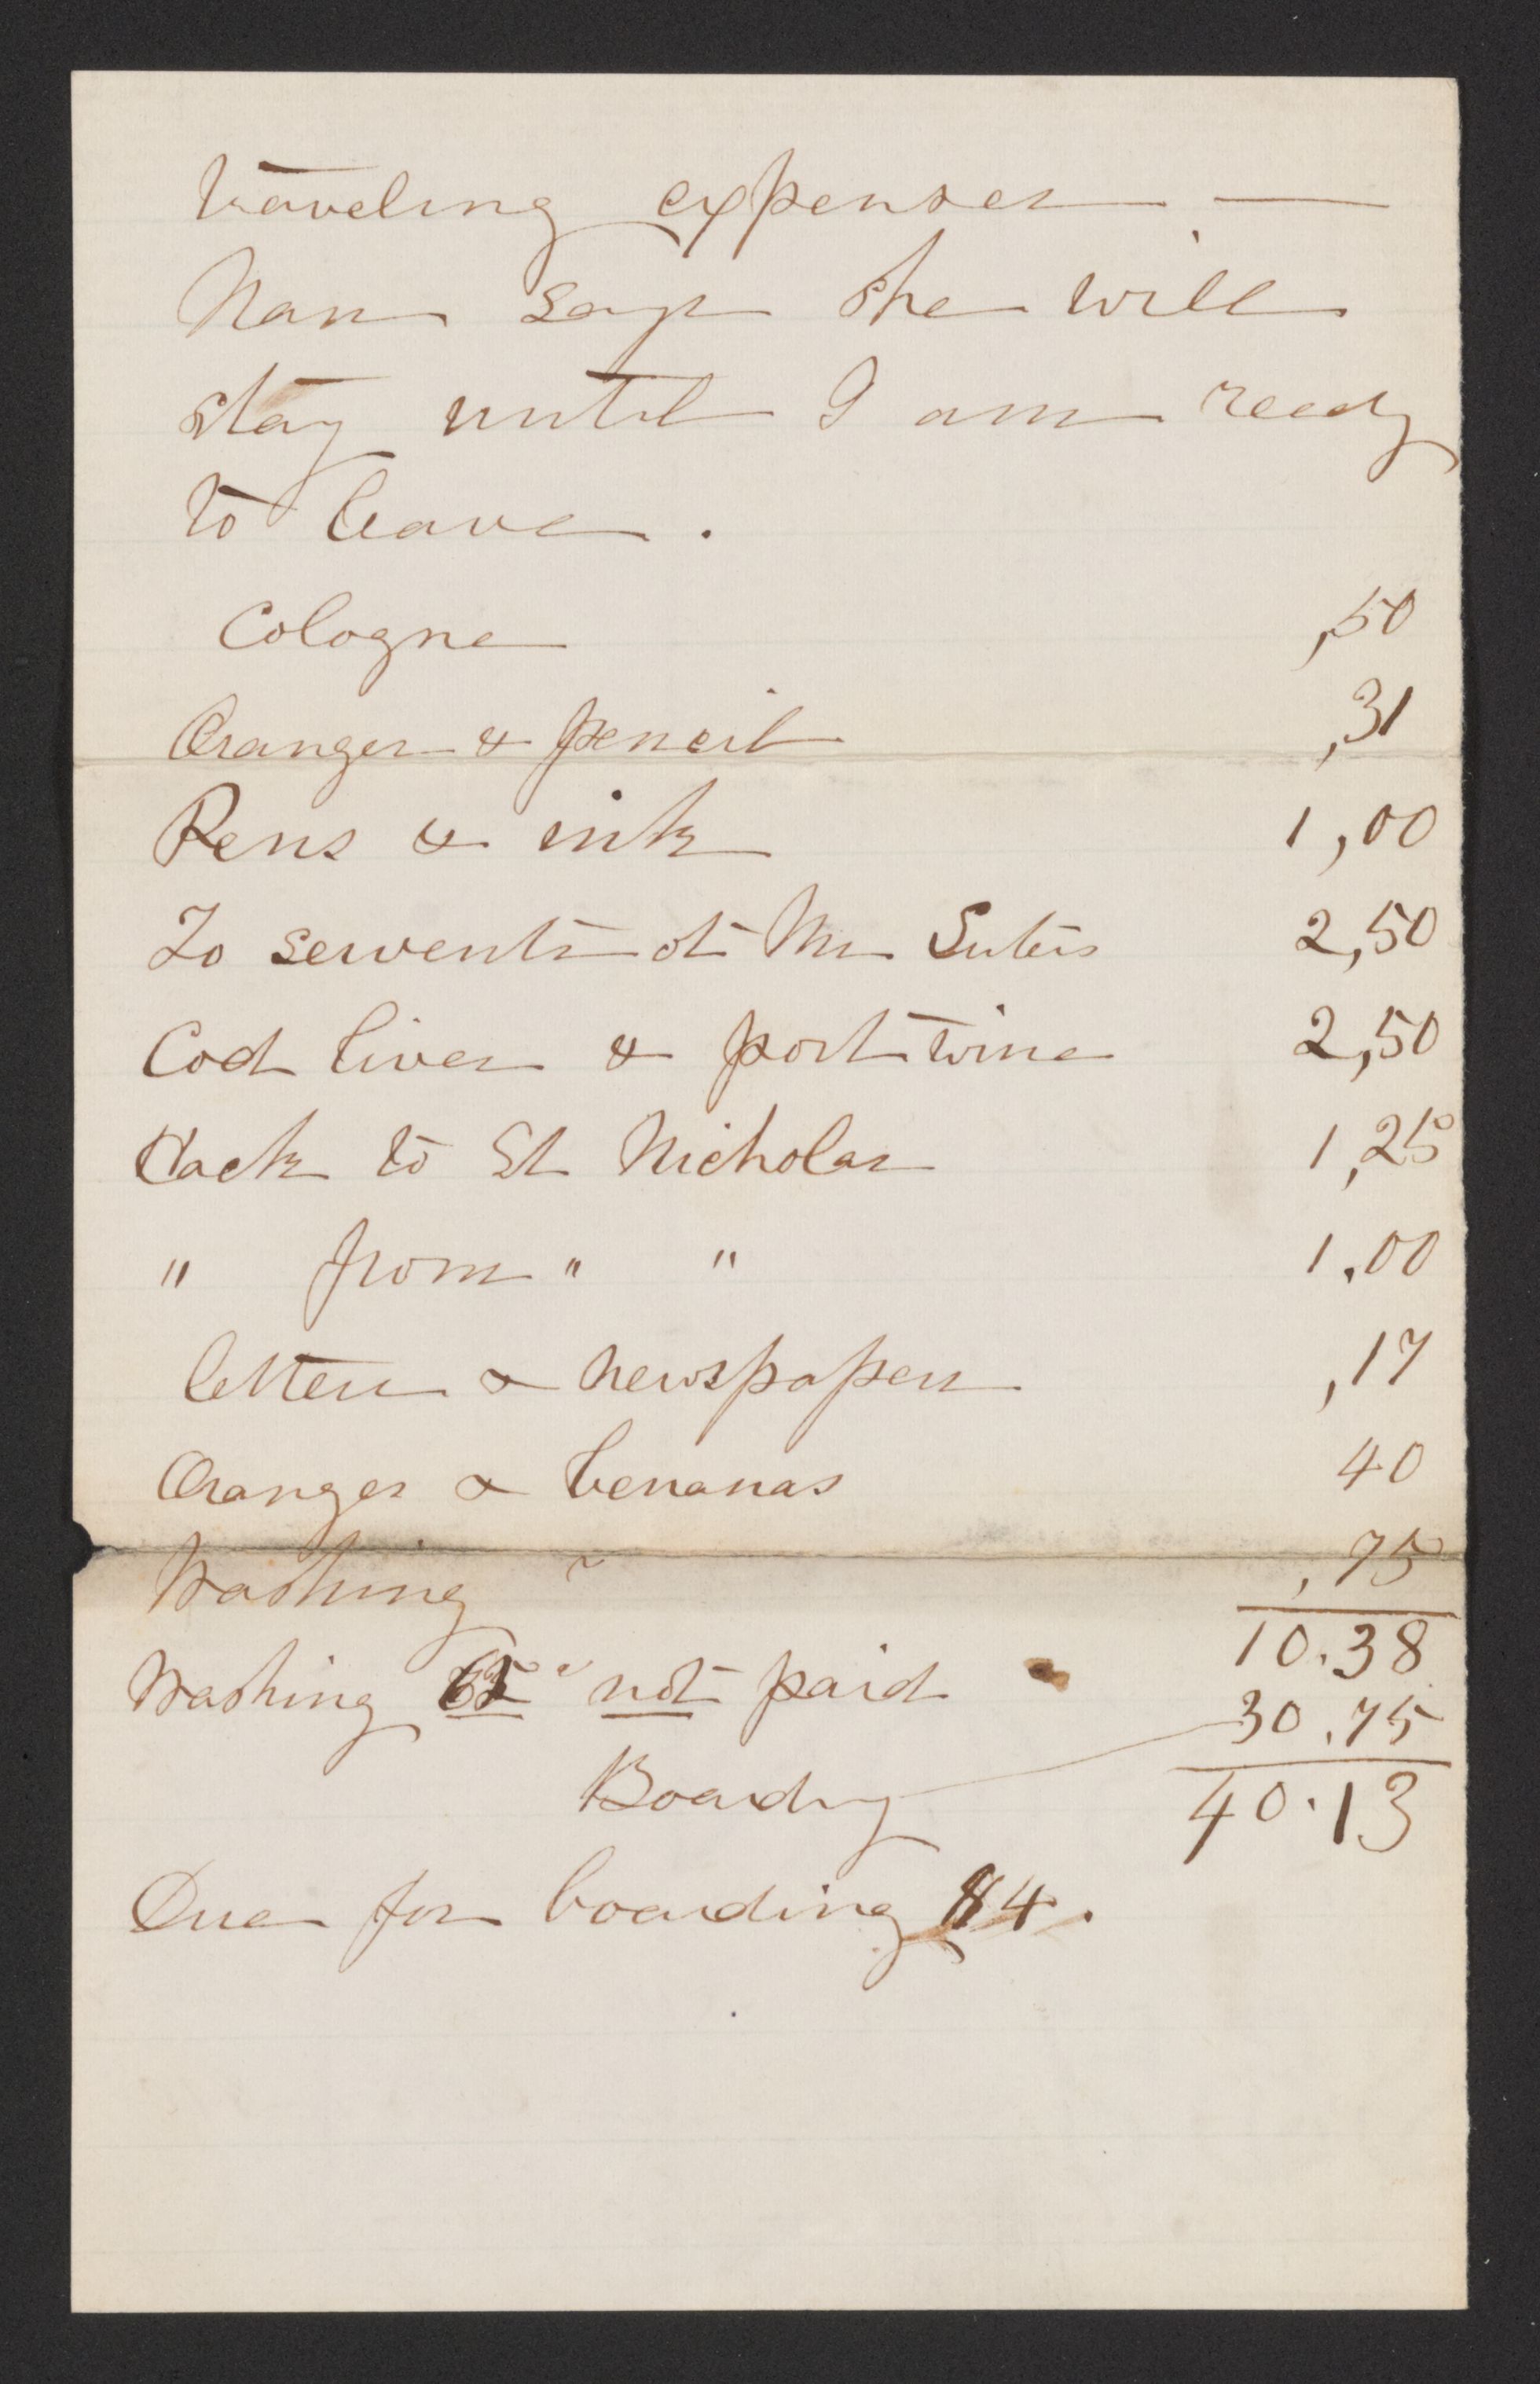 traveling expenses —
Nan says she will
stay until I am ready
to leave .
Cologne ,50
Oranges & pencil ,31
Pens & ink 1,00
To servents at Mrs Suters 2,50
Cod liver & port wine 2,50
Hack to St Nicholas 1,25
" from " " 1.00
letters & newspapers ,17
Oranges & bananas 40
Washing ,75
10.38
Washing not paid
30.75
Boarding
40.13
Due for boarding 84.